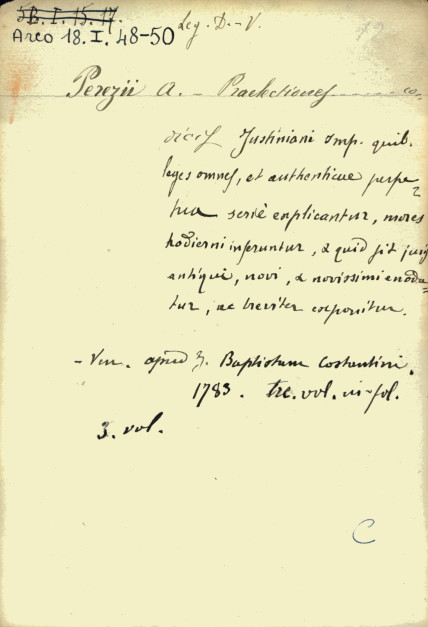 5B. I. 15. 17.
Leg. D. - V.
Arco 18. I. 48-50
Perezii A. - Praelectiones co-
dicis Justiniani Imp. quib.
leges omnes, et authenticae perpe-
tua serie explicantur, mores
hodierni inseruntur, & quid sit juris
antiqui, novi, & novissimi enoda-
tur, ac breviter exponitur.
- Ven. apud J. Baptistam Costantini.
1783. tre. vol. in-fol.
3. vol.
C